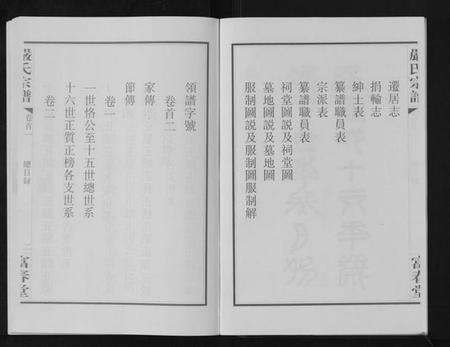 嚴氏宗譜
富春堂
遷居志
捐輸志
紳士表
纂譜職員表
宗派表
纂譜職員表
祠堂圖說及祠堂圖
墓地圖說及墓地圖
服制圖說及服制圖服制解
領譜字號
卷首二
家傳
節傳
卷一
一世恪公至十五世總世系
卷二
十六世正質正榜各支世系
嚴氏宗譜
卷首一
總目錄
二
富春堂